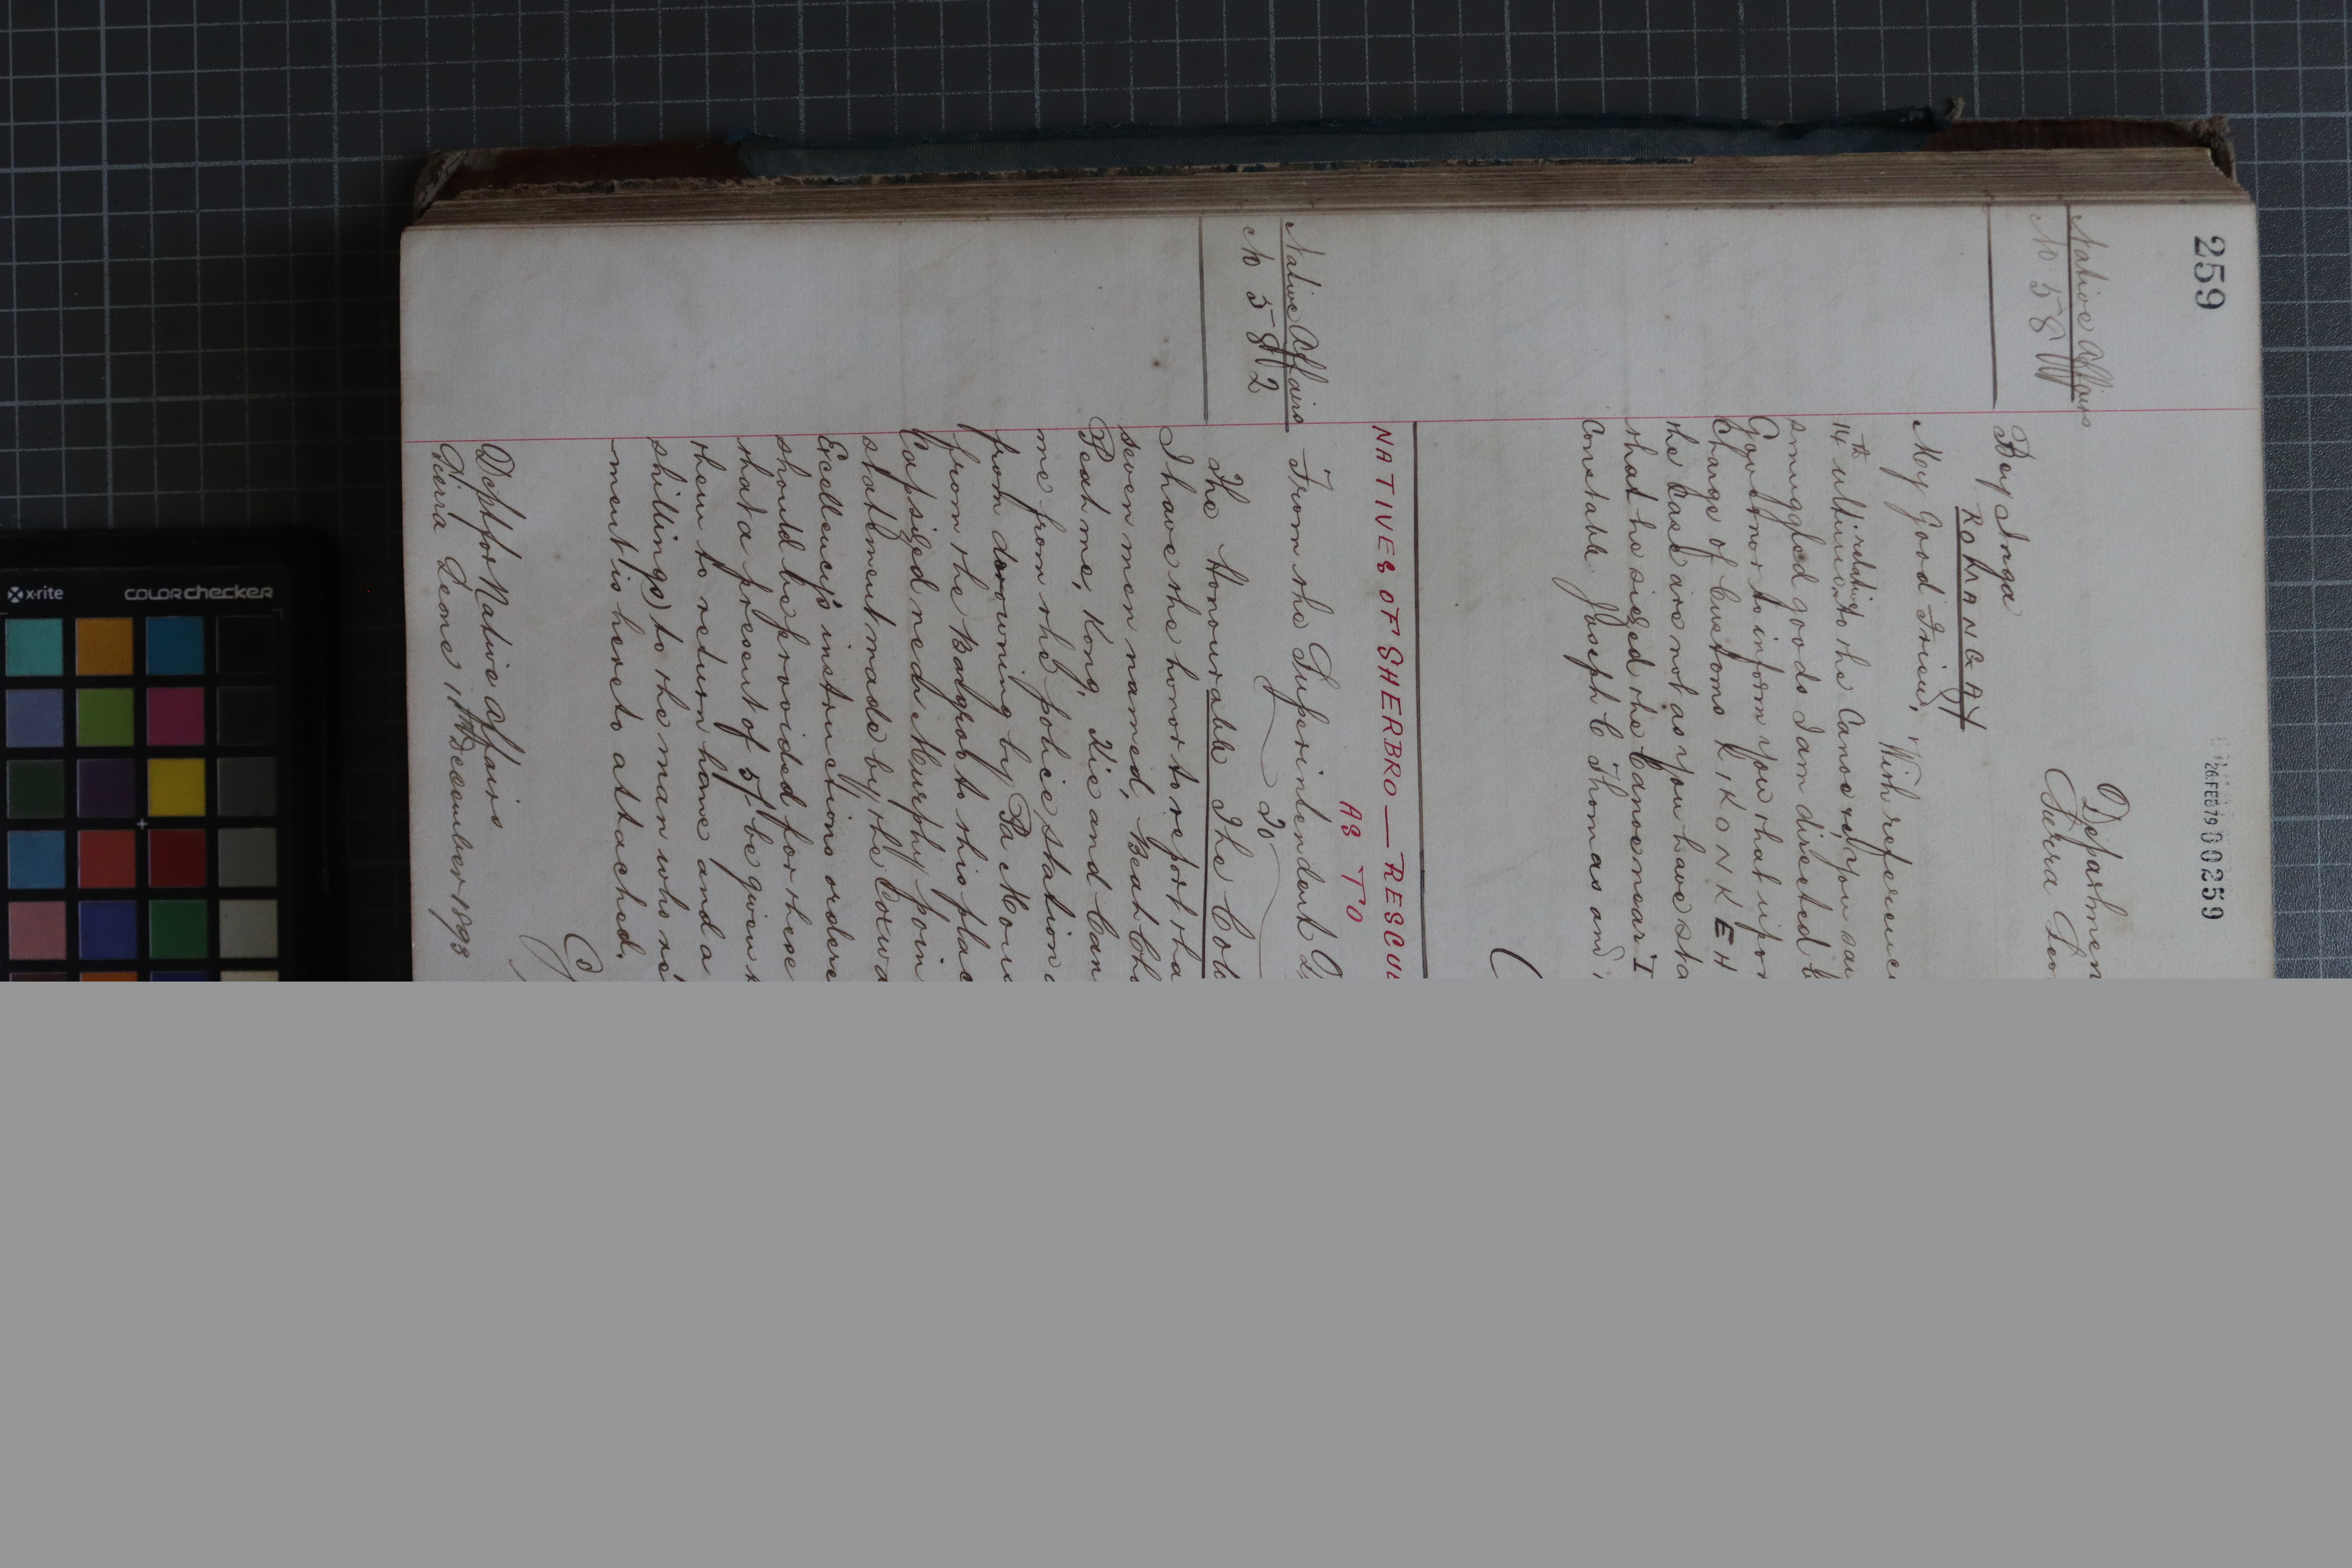 259
26 FEB 79 000259
Native Affairs
No 581
Departmen
Sierra Leon
Bey Inga
ROMANGAY
My Good Friend,
With reference
14th ultimo relative to the Canoe you say
smuggled goods I am directed b
Governor to inform you that upon
Charge of Customs KIKONKEH
the Case are not as you have sta
that he seized the Canoe near T
Constable Joseph C Thomas and
NATIVES OF SHERBRO — RESCU
AS TO
Native Affairs
No 582
From the Superintendent
To
The Honourable The Col
I have the honor to report tha
seven men named, Beah Ch
Peah me, Kong, Kie and Can
me from the police station
from drowning by Pa Mou
from the Bargroo to this plac
Capsized near Murphy poin
statement made by the Coxwa
Excellency's instructions ordere
should be provided for these
that a present of 5/- be given t
them to return home and a
shillings) to the man who re
-ment is hereto attached.
Dept for Native Affairs
Sierra Leone 11th December 1893